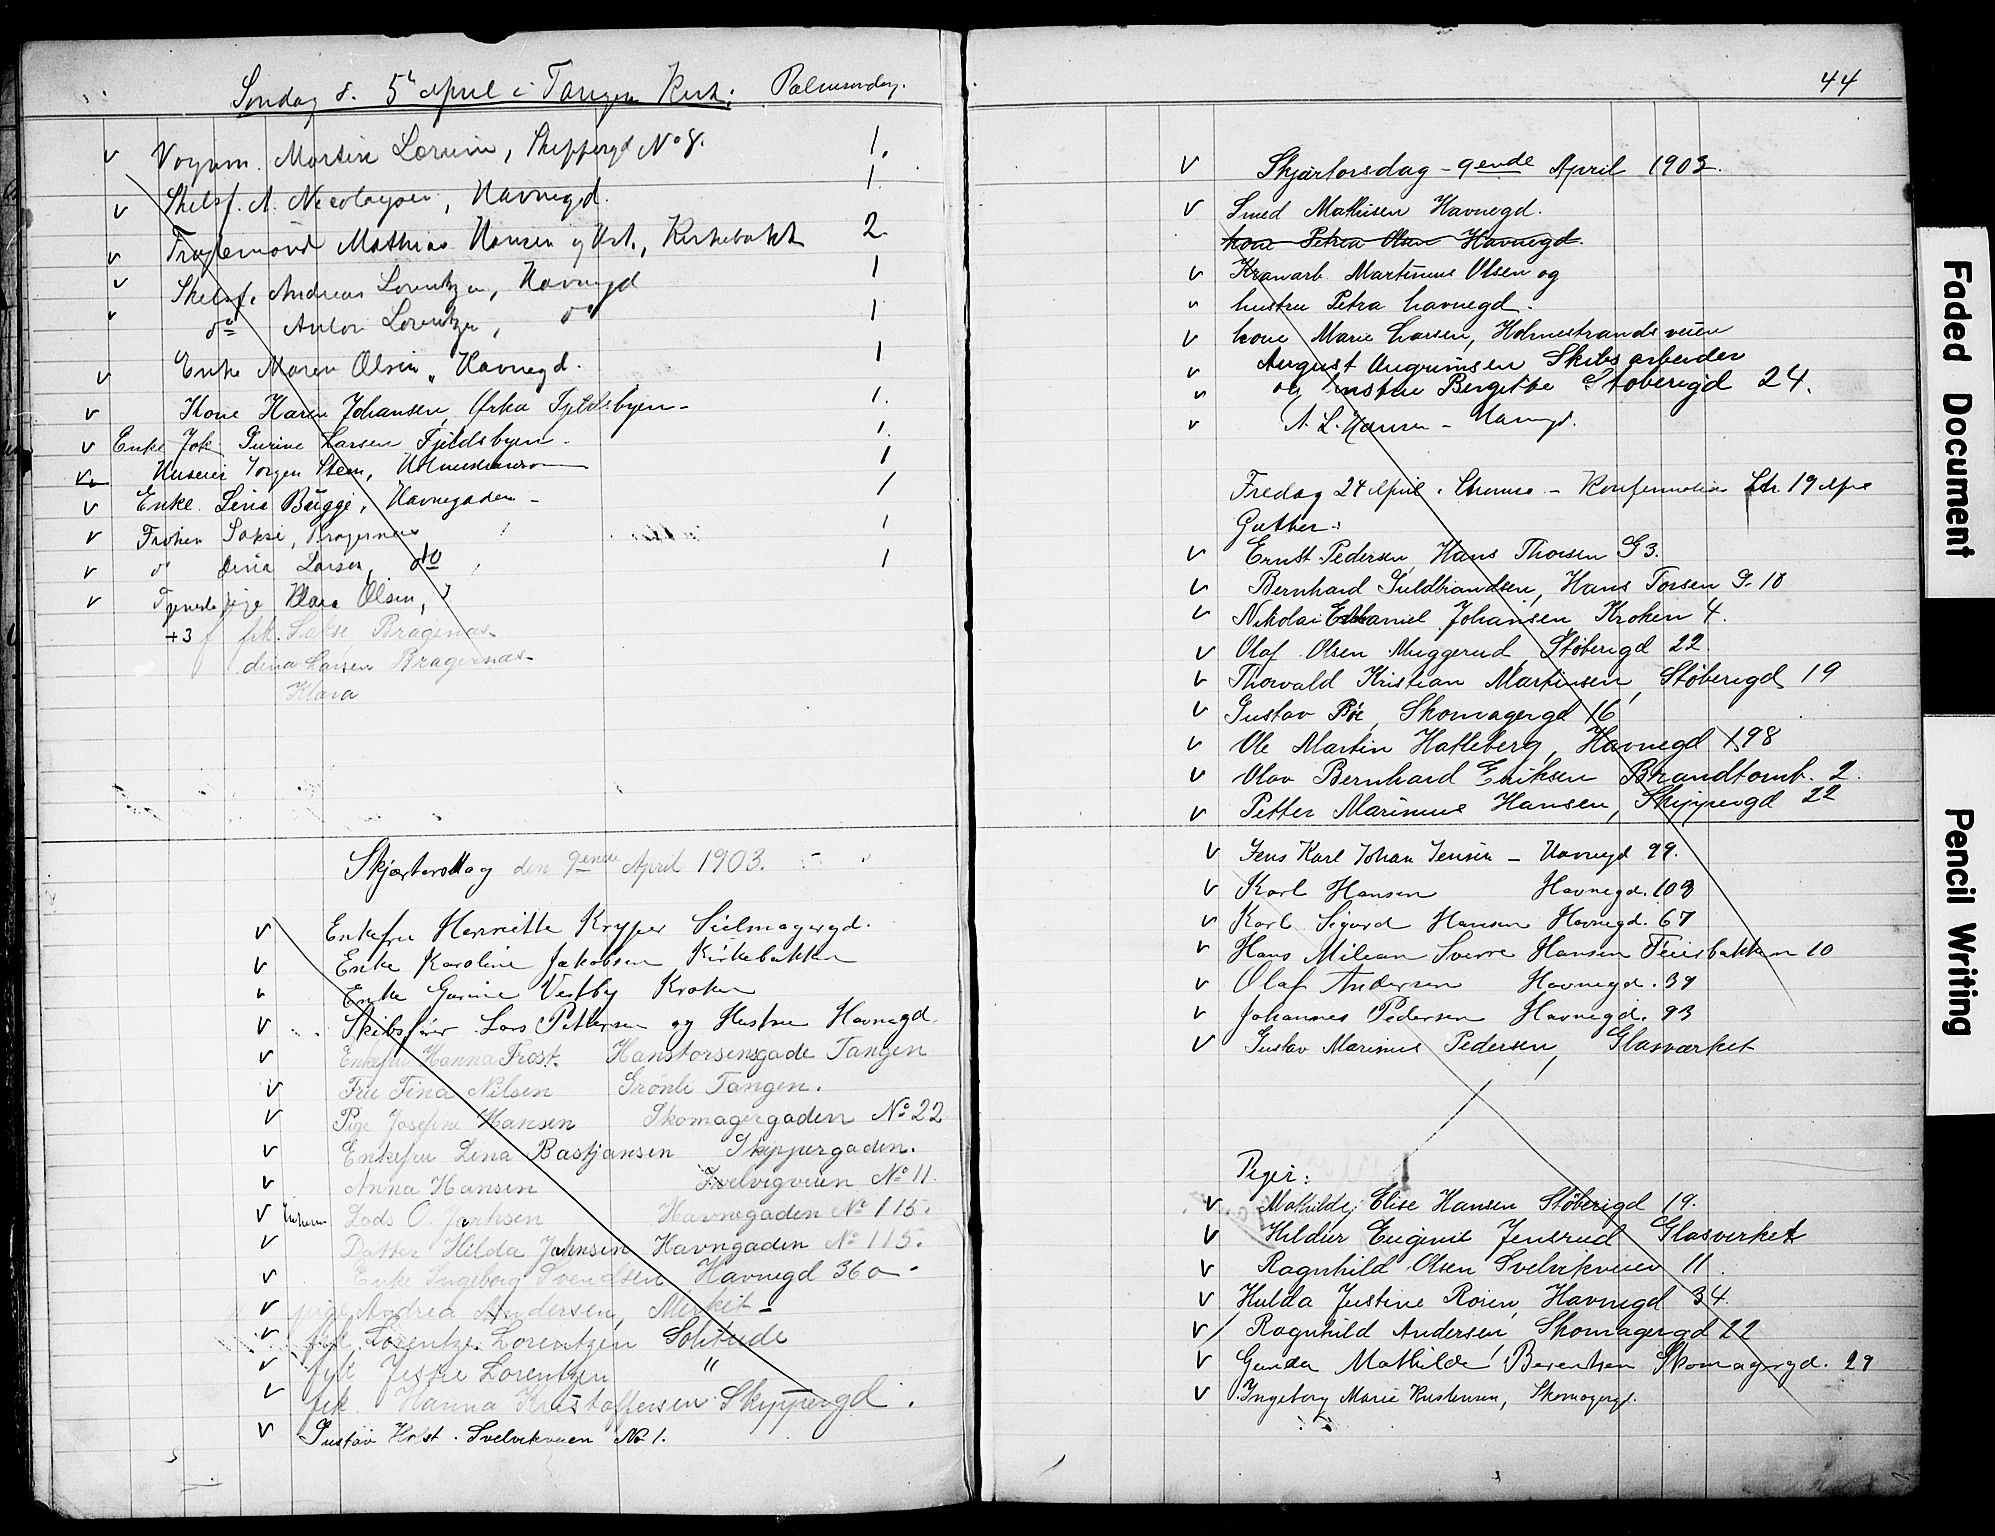 Søndag d. 5 april i Tangen Kirk: Palmesøndag.
Vognm. Martin Larsen, Skippergd No 8. 1.
Skibsf. A. Nicolaysen, Havnegd. 1
Mathias Hansen og Hst., Kirkebakk 2
Skibsf. Andreas Lorentzen, Havnegd 1
do Anton Lorentzen, do 1
Enke Maren Olsen, Havnegd. 1
Kone Karen Johansen, Fjeldsbyen - 1.
Enke Gurine Larsen Fjeldsbyen. 1.
Huseier Jørgen Steen, 1
Enke Lina Bugge, Havnegaden - 1
Frøken Sakse, Bragernæs 1
do Dina Larsen, do 1
Tjenestepige Klara Olsen,
+3 frk. Sakse Bragernæs
dina Larsen Bragernæs-
Klara
Skjærtorsdag den 9ende April 1903.
Enkefru Henriette Kryper Seilmagergd.
Enke Karoline Jakobsen Kirkebakken
Enke Gurine Vestby Kroken
Skibsfører Lars Pettersen og Hustru Havnegd.
Enkefru Hanna Frost. Hanstorsensgade Tangen
Fru Tina Nilsen Grönli Tangen.
Pige Josefine Hansen Skomagergaden No 22
Enkefru Lina Bastjansen Skippergaden.
Anna Hansen Svelvigveien No 11.
Lods O. Jachsen Havnegaden No 115.
Datter Hilda Jahnsen Havngaden No 115.
Enke Ingeborg Svendsen Havnegd 36a-
pige Andrea Andersen, Merket -
frk Lorentze Lorentzen Solitude
frk Jessie Lorentzen "
frk. Hanna Kristoffersen Skippergd.
Gustav Holst. Svelvikveien No 1.
44
Skjærtorsdag - 9ende April 1903.
Smed Mathisen Havnegd.
kone Petrea Olsen Havnegd.
Kranarb. Martinius Olsen og
hustru Petra havnegd.
kone Marie Larsen, Holmestrandsveien
August Augrimsen Skibsarbeider
og hustru Bergitte Støberigd 24.
A. L. Hansen - Havngd.
Fredag 24 April i Strømsø - Konfirmation 19 Apr
Gutter:
Ernst Pedersen, Hans Thorsen G 3.
Bernhard Guldbrandsen, Hans Torsen G. 10
Nikolai Johansen, Kroken 4.
Olaf Olsen Muggerud, Støberigd 22
Thorvald Kristian Martinsen, Støberigd 19
Gustav Bøe, Skomagergd 16
Ole Martin Hatleberg, Havnegd 198
Olav Bernhard Eriksen Brandtomt. 2.
Petter Marinius Hansen, Skippergd 22
Jens Karl Johan Jensen - Havnegd 99.
Karl Hansen Havnegd. 103
Karl Sigurd Hansen Havnegd. 67
Hans Milian Sverre Hansen Feierbakken 10
Olaf Andersen Havnegd. 39
Johannes Pedersen Havnegd. 93
Gustav Marinius Pedersen, Glasværket
Piger:
Mathilde Elise Hansen Støberigd 19.
Hildur Eugenie Jensrud Glasverket
Ragnhild Olsen Svelvikveien 11.
Hulda Justine Roren, Havnegd 34.
Ragnhild Andersen, Skomagergd 22
Gunda Mathilde Berentsen Skomagergd. 29
Ingeborg Marie Kristensen, Skomagergd.
Faded Document
Pencil Writing